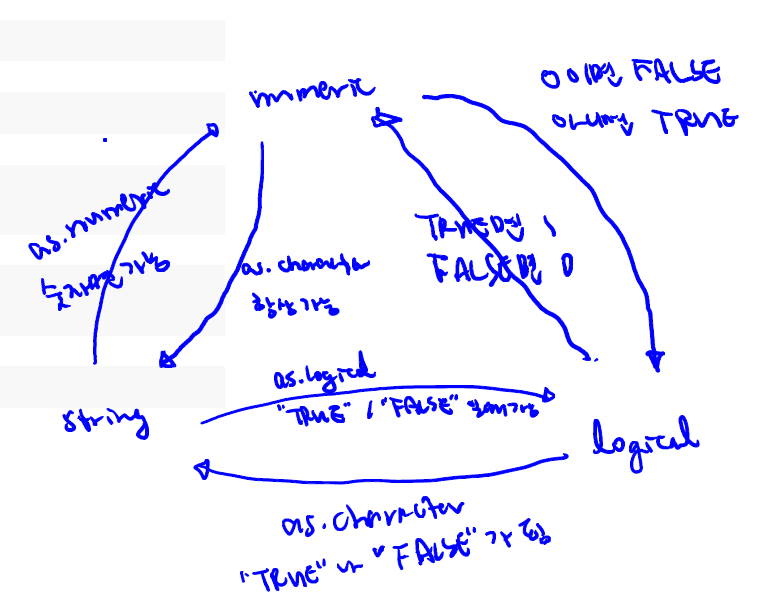 numeric
0이면 FALSE
아니면 TRUE
as.numeric
숫자면 가능
as.character
항상 가능
TRUE면 1
FALSE면 0
as.logical
"TRUE" / "FALSE" 가능
string
logical
as.character
"TRUE" 나 "FALSE" 가 됨